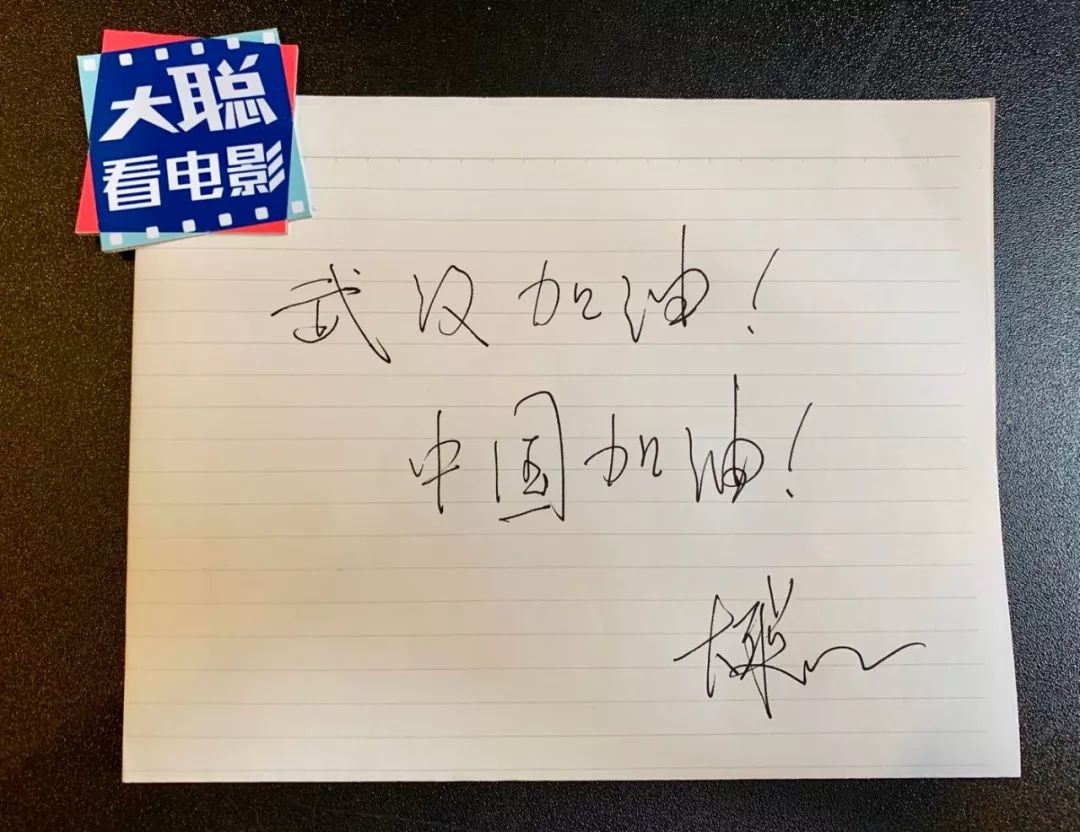 大聪
看电影
武汉加油!
中国加油!
大聪